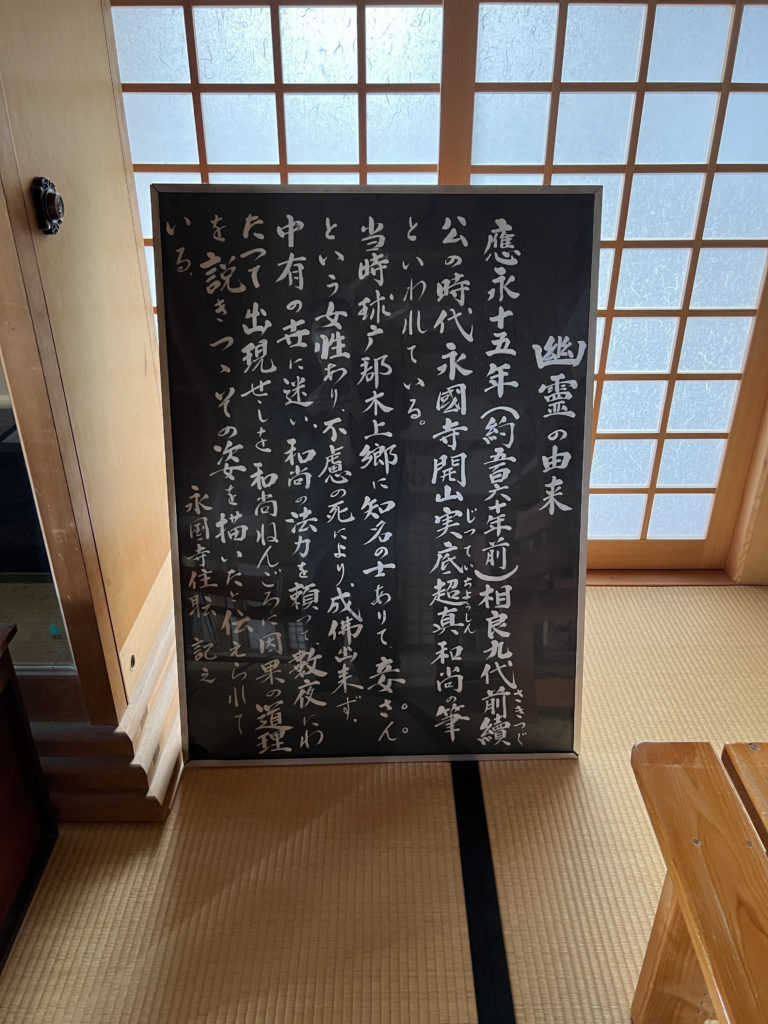 幽霊の由来
應永十五年(約五百六十年前)相良九代前續
さきつぐ
公の時代永國寺開山実底超真和尚の筆
じっていちょうしん
といわれている。
当時球广郡木上郷に知名の士ありて、妾さん
という女性あり、不慮の死により、成佛出来ず、
中有の世に迷い、和尚の法力を頼って、数夜にわ
たって出現せしを和尚ねんごろに因果の道理
を説きつゝその姿を描いたと伝えられて
いる。
永国寺住職 記之